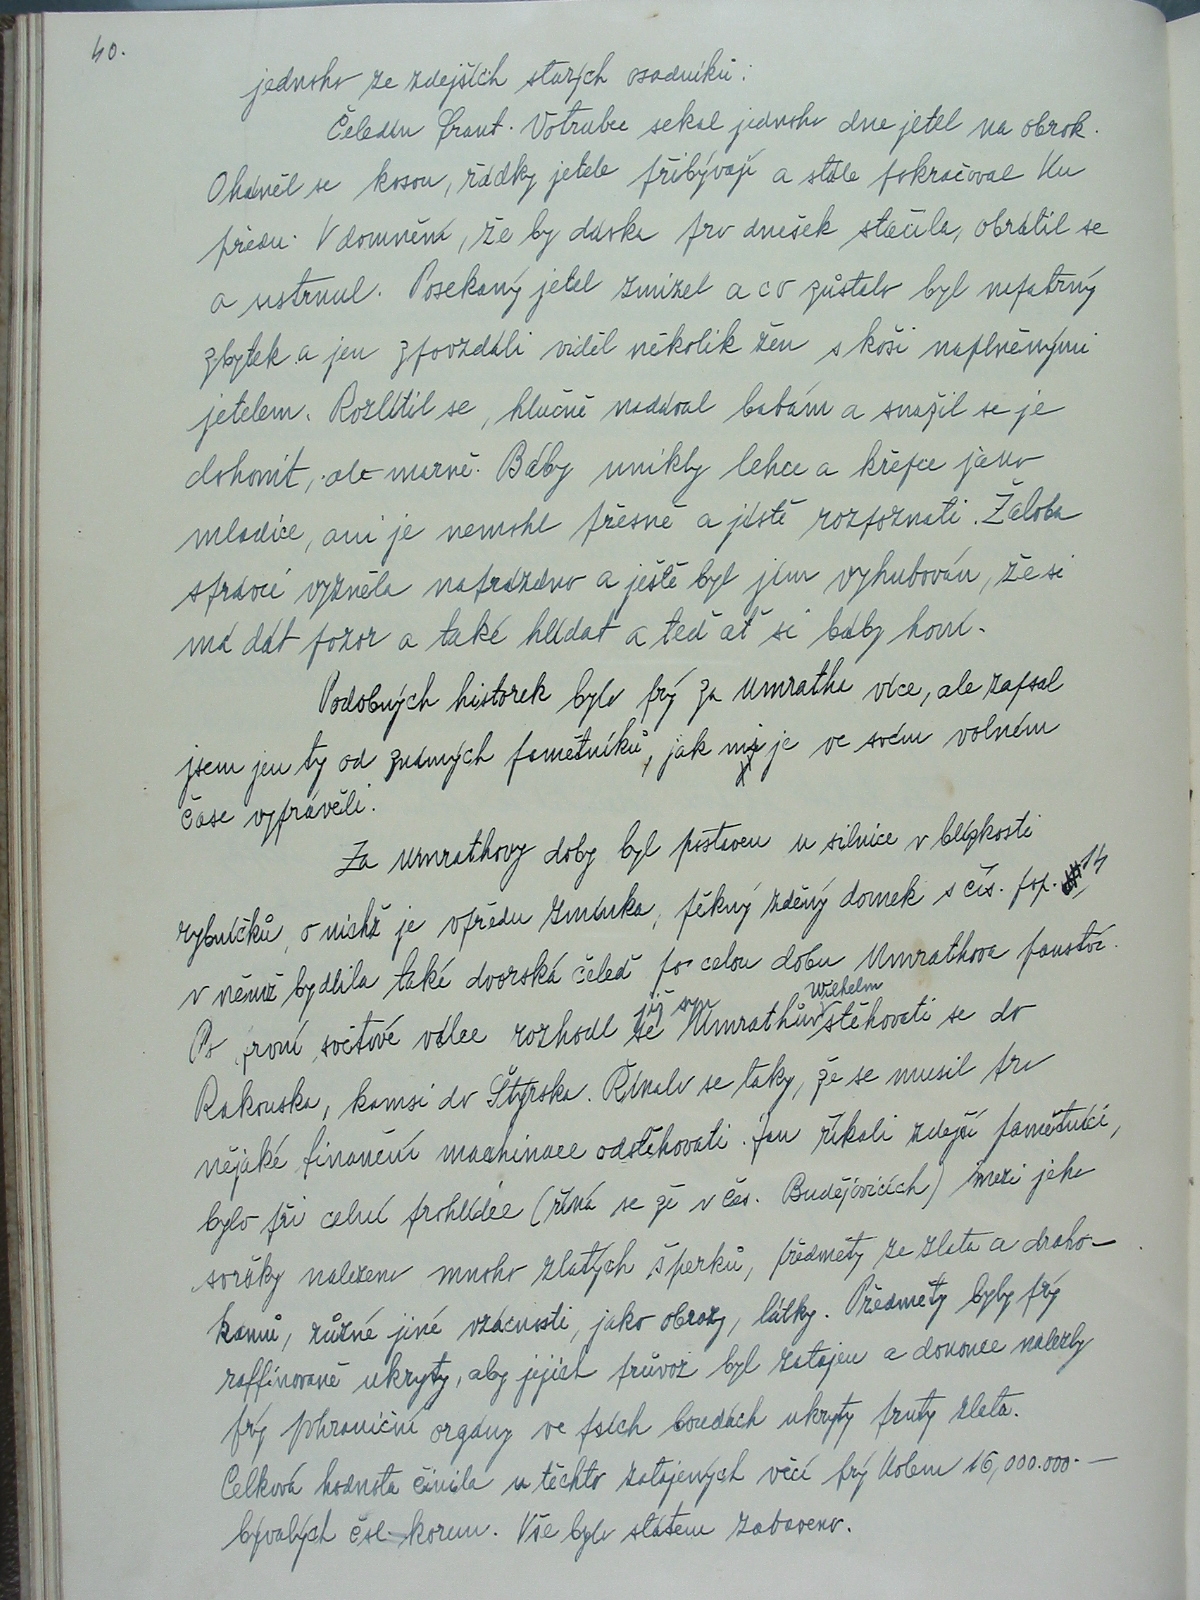 40.
jednoho ze zdejších starých osadníků:
Čeledín Frant. Votrubec sekal jednoho dne jetel na obrok.
Oháněl se kosou, řádky jetele přibývají a stále pokračoval ku
předu. V domnění, že by dávka pro dnešek stačila, obrátil se
a ustrnul. Posekaný jetel zmizel a co zůstalo byl nepatrný
zbytek a jen zpovzdáli viděl několik žen s koši naplněnými
jetelem. Rozlítil se, hlučně nadával babám a snažil se je
dohonit, ale marně. Báby unikly lehce a křepce jako
mladice, ani je nemohl přesně a jistě rozpoznati. Žaloba
správci vyzněla naprázdno a ještě byl jím vyhubován, že si
má dát pozor a také hlídat a teď ať si báby honí.
Podobných historek bylo prý za Umratha více, ale zapsal
jsem jen ty od známých pamětníků, jak mi je ve svém volném
čase vyprávěli.
Za Umrathovy doby byl postaven u silnice v blízkosti
rybníčků, o nichž je vpředu zmínka, pěkný zděný domek s čís. pop. 14,
v němž bydlila také dvorská čeleď po celou dobu Umrathova panství.
Po první světové válce rozhodl se již syn Umrathův Wilhelm stěhovati se do
Rakouska, kamsi do Štýrska. Říkalo se taky, že se musil pro
nějaké finanční machinace odstěhovati. Jau říkali zdejší pamětníci,
bylo při celní prohlídce (říká se že v Čes. Budějovicích) mezi jeho
svršky nalezeno mnoho zlatých šperků, předměty ze zlata a draho-
kamů, různé jiné vzácnosti, jako obrazy, látky. Předměty byly prý
raffinovaně ukryty, aby jejich průvoz byl zatajen a dokonce nalezly
prý pohraniční orgány ve psích boudách ukryty pruty zlata.
Celková hodnota činila u těchto zatajených věcí prý kolem 16,000.000.—
bývalých čsl. korun. Vše bylo státem zabaveno.